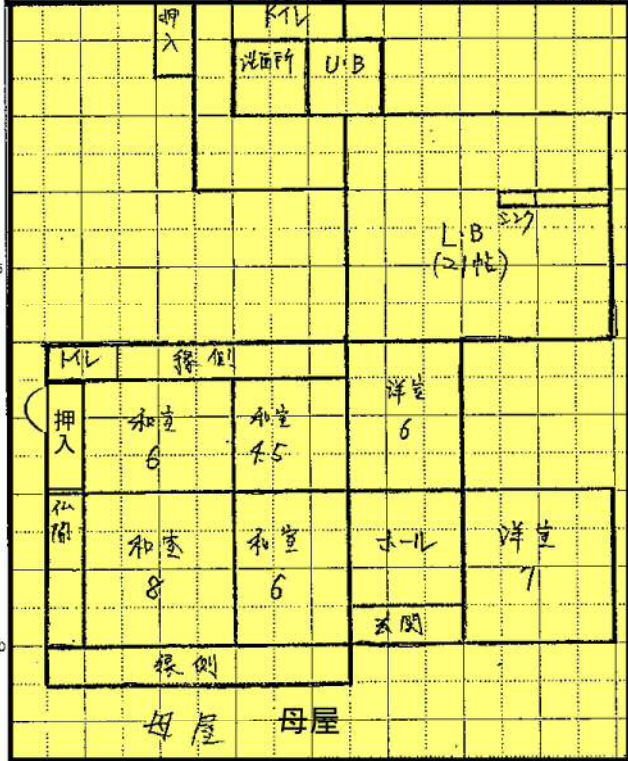 押入
トイレ
洗面所
U・B
シンク
L・B
(21帖)
トイレ
縁側
押入
和室
6
和室
4.5
洋室
6
仏間
和室
8
和室
6
ホール
洋室
7
玄関
縁側
母屋
母屋